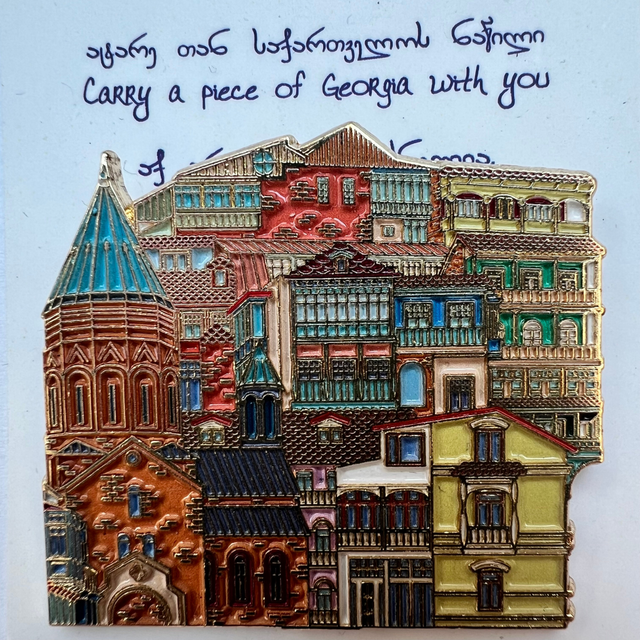 ატარე თან საქართველოს ნაწილი
Carry a piece of Georgia with you
აქ